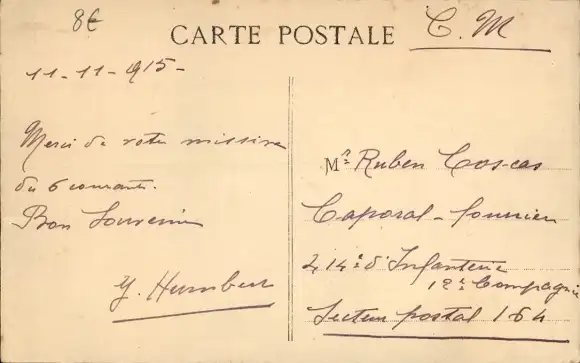 8€
CARTE POSTALE
C. M
11-11-1915-
Merci de votre missive
du 6 courant.
Bon Souvenir
Y. Humbert
Mr. Ruben Cos-cas
Caporal-fourrier
414e d'Infanterie
12e Compagnie
Secteur postal 164